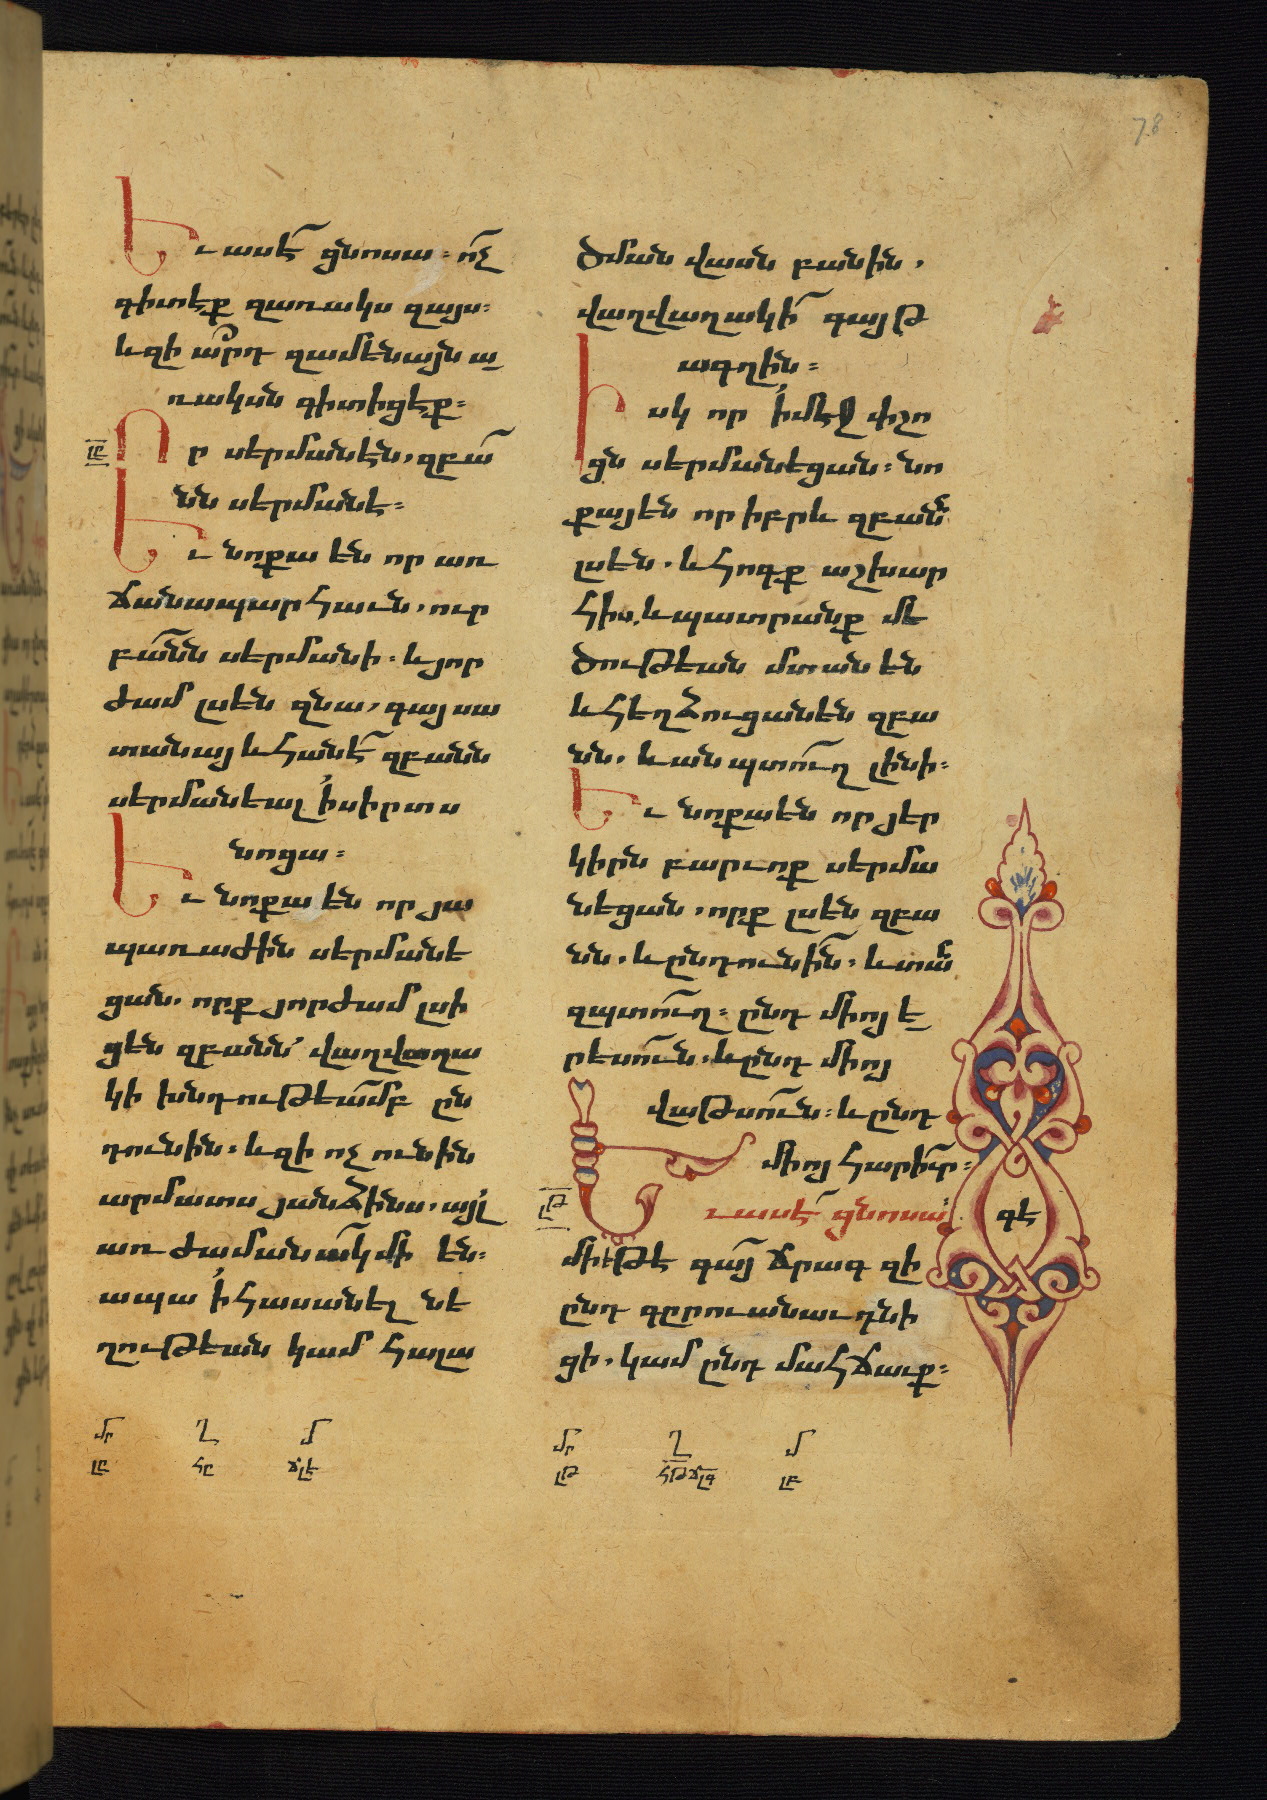 78
Եւ ասէ ցնոսա. ոչ
գիտէք զառակս զայս.
և զի արդ զամենայն ա
ռակսն գիտիցէք.
լը
Որ սերմանէն, զբա
նն սերմանէ.
Եւ նոքա են որ առ
ճանապարհաւն, ուր
բանն սերմանի. և յոր
ժամ լսեն զնա, գայ սա
տանայ և հանէ զբանն
սերմանեալ ի սիրտս
նոցա.
Եւ նոքա են որ յա
պառաժին սերմանե
ցան. որք յորժամ լսի
ցեն զբանն՝ վաղվաղա
կի խնդութեամբ ըն
դունին. և զի ոչ ունին
արմատս յանձինս, այլ
առ ժամանակ մի են.
ապա ի հասանել նե
ղութեան կամ հալա
ծման վասն բանին,
վաղվաղակի գայթ
ագղին.
Իսկ որ ի մէջ փշո
ցն սերմանեցան. նո
քա են որ իբրև զբանն
լսեն. և հոգք աշխար
հիս, և պատրանք մե
ծութեան մտանեն
և հեղձուցանեն զբա
նն. և անպտուղ լինի.
Եւ նոքա են որ յեր
կիրն բարւոք սերմա
նեցան, որք լսեն զբա
նն. և ընդունին. և տան
զպտուղ. ընդ միոյ ե
րեսուն. և ընդ միոյ
վաթսուն. և ընդ
միոյ հարիւր.
լթ
Եւ ասէ ցնոսա.
գէ
միթէ գայ ճրագ զի
ընդ գրուանաւ դնի
ցի. կամ ընդ մահճաւք.
մր Ղ մ
լը հը ճլէ
մր Ղ մ
լթ հթ ճլգ լբ